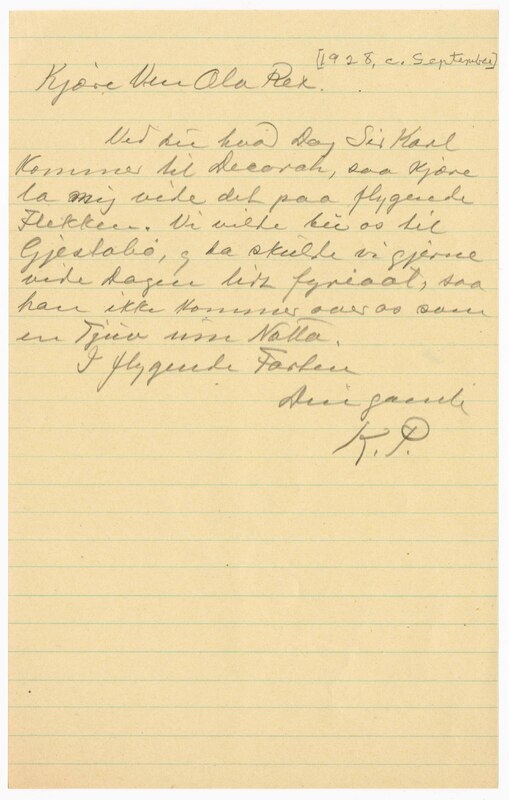 [1928, c. September]
Kjære Ven Ola Rex.
Ved du hvad Dag Sir Karl
Kommer til Decorah, saa kjære
la mig vide det paa flygende
Flekken. Vi vilde be os til
Gjestabø, og da skulde vi gjerne
vide Dagen lidt fyriaat, saa
han ikke kommer over os som
en Tjuv um Natta.
I flygende Farten
Din gamle
K. P.